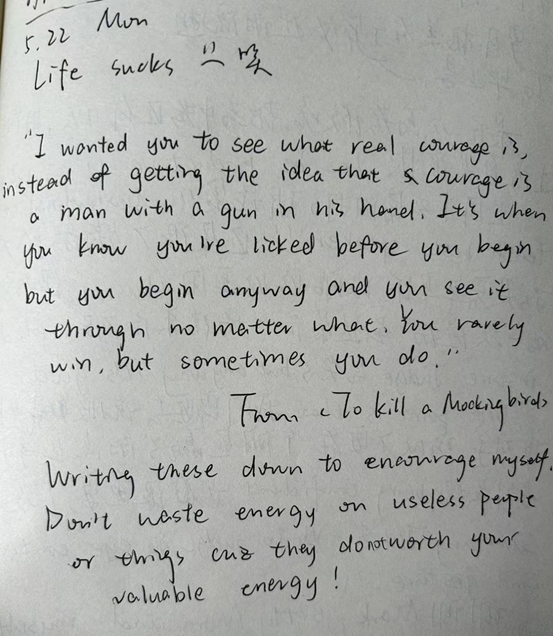 5.22 Mon
Life sucks
"I wanted you to see what real courage is,
instead of getting the idea that courage is
a man with a gun in his hand. It's when
you know you're licked before you begin
but you begin anyway and you see it
through no matter what. You rarely
win, but sometimes you do."
From <To kill a Mockingbird>
Writing these down to encourage myself.
Don't waste energy on useless people
or things cuz they do not worth your
valuable energy!